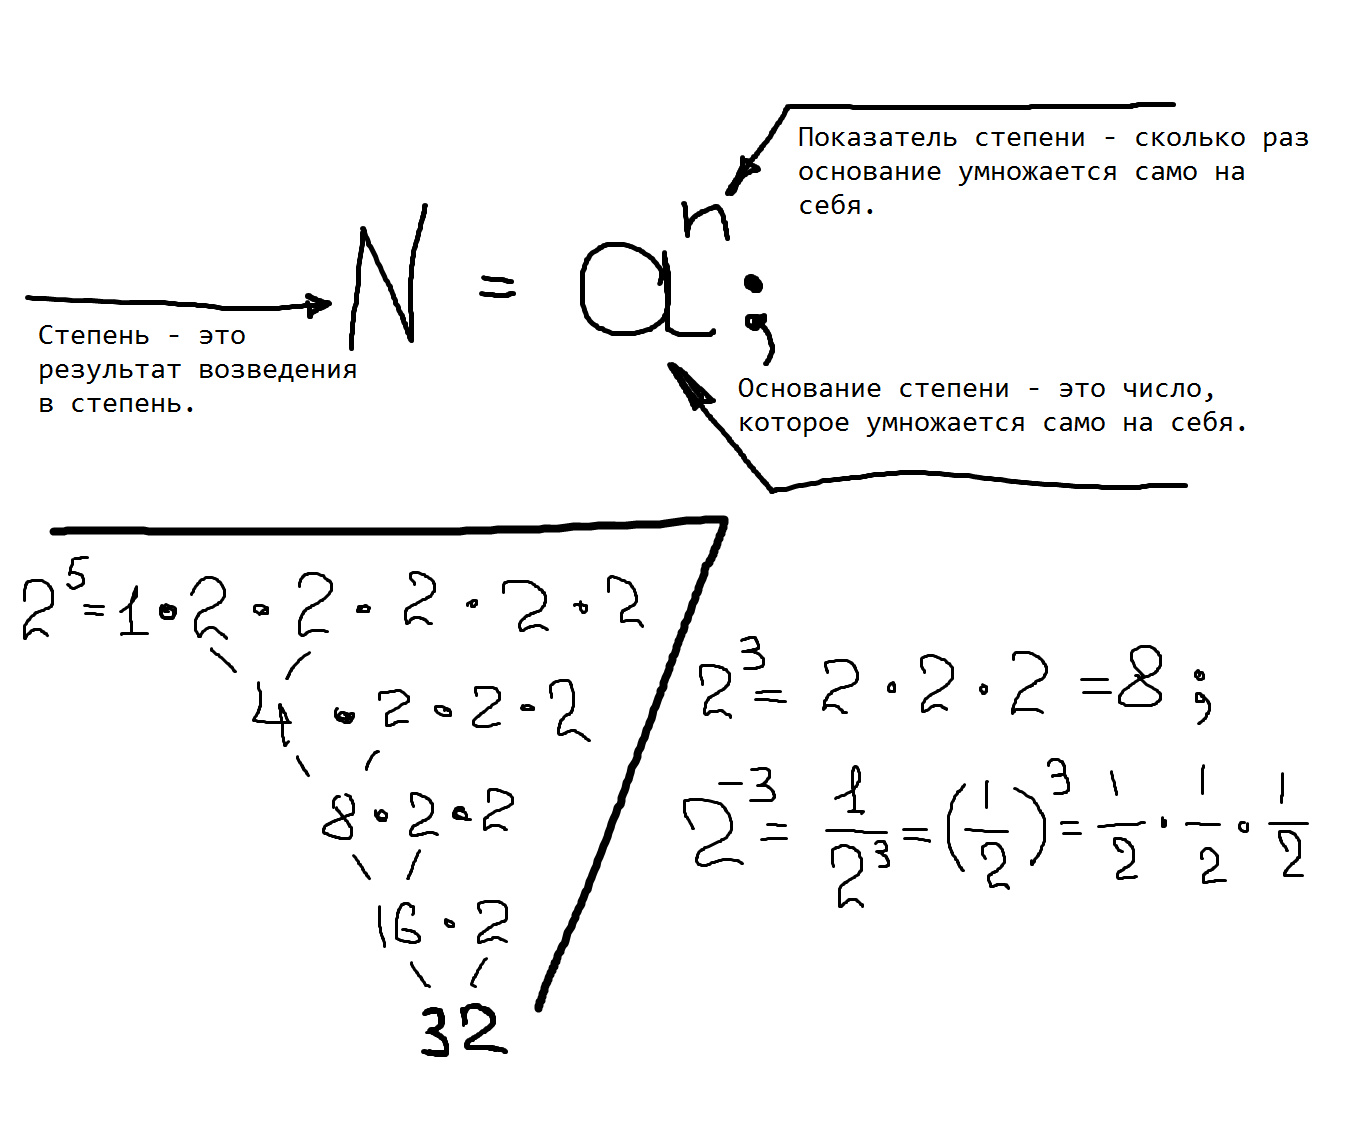 Показатель степени - сколько раз
основание умножается само на
себя.
N = aⁿ;
Степень - это
результат возведения
в степень.
Основание степени - это число,
которое умножается само на себя.
2⁵ = 1 · 2 · 2 · 2 · 2 · 2
4 · 2 · 2 · 2
8 · 2 · 2
16 · 2
32
2³ = 2 · 2 · 2 = 8 ;
2⁻³ = 1/2³ = (1/2)³ = 1/2 · 1/2 · 1/2